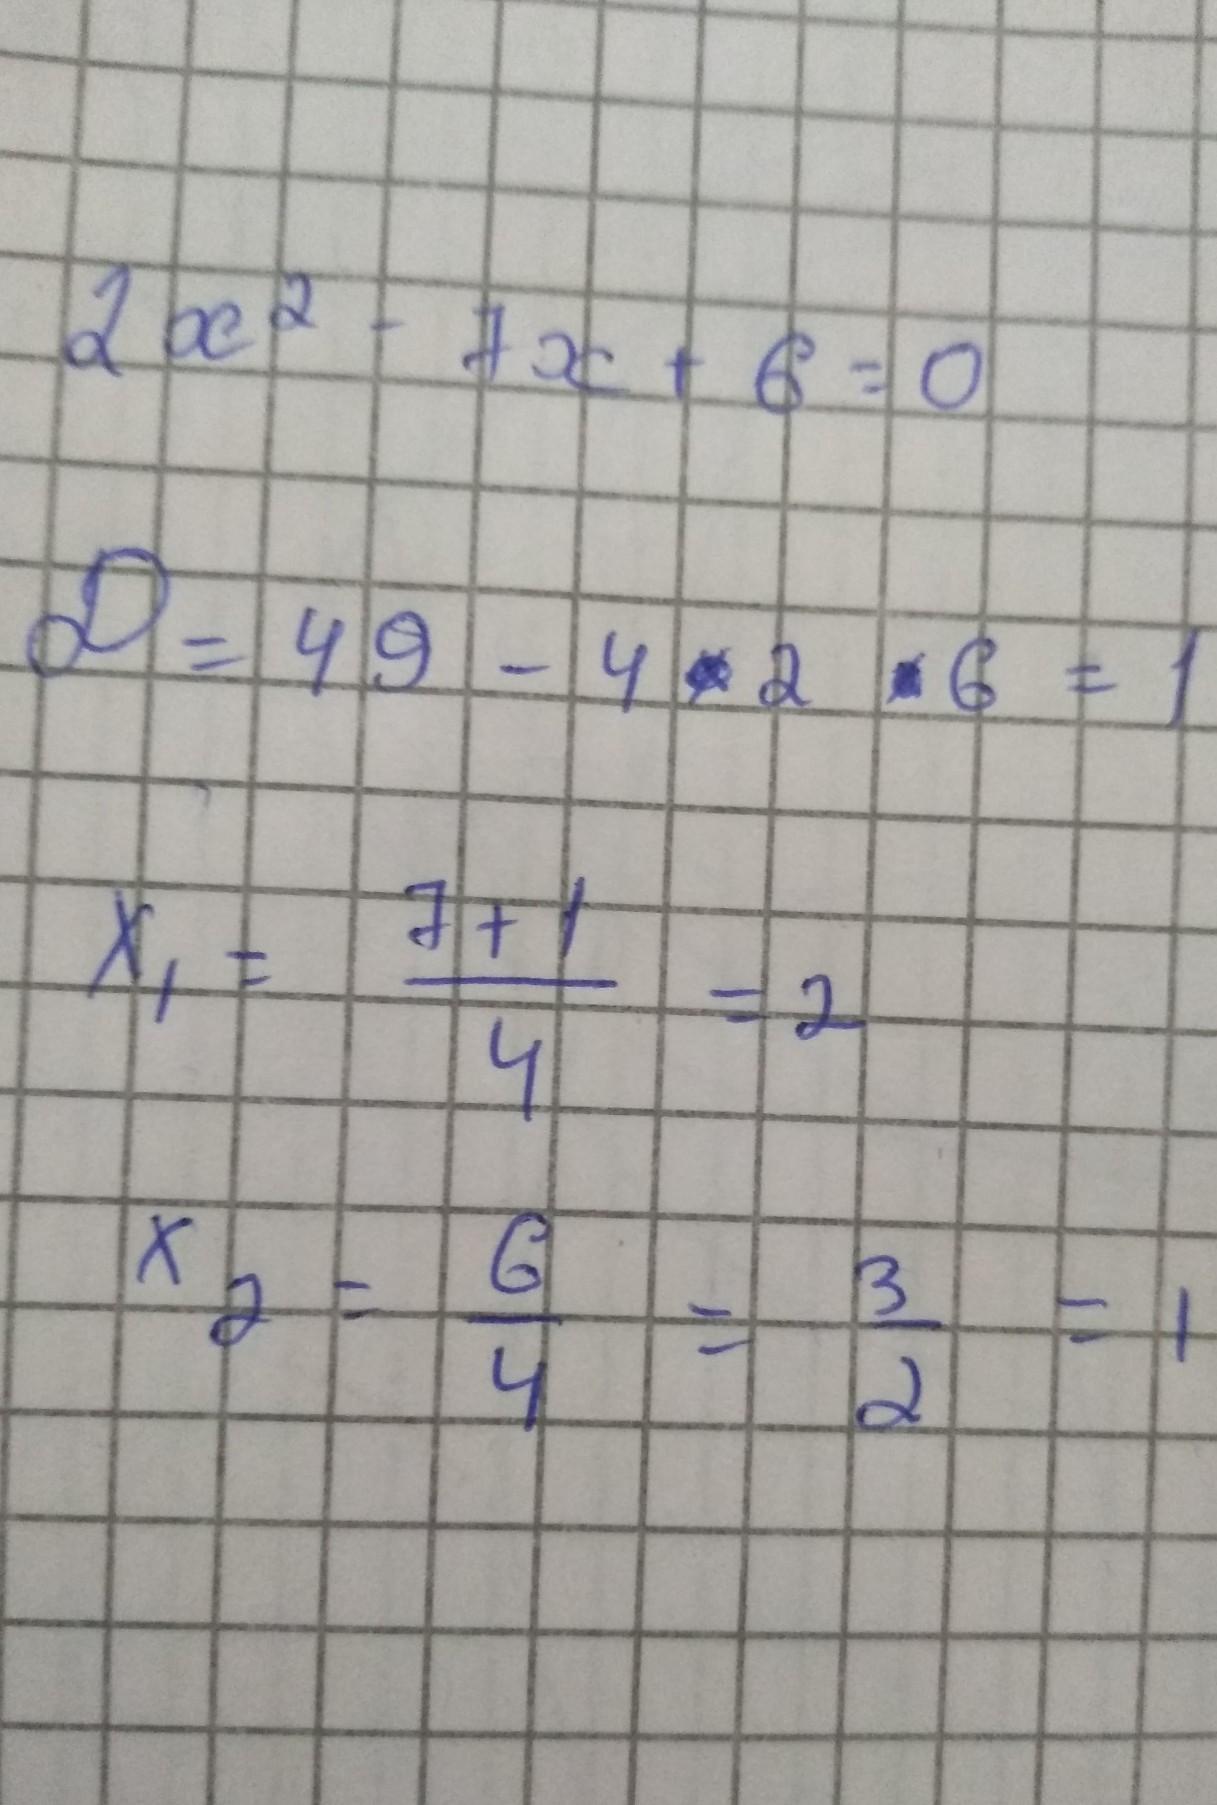 2x² - 7x + 6 = 0
D = 49 - 4 · 2 · 6 = 1
x₁ = (7 + 1)/4 = 2
x₂ = 6/4 = 3/2 = 1